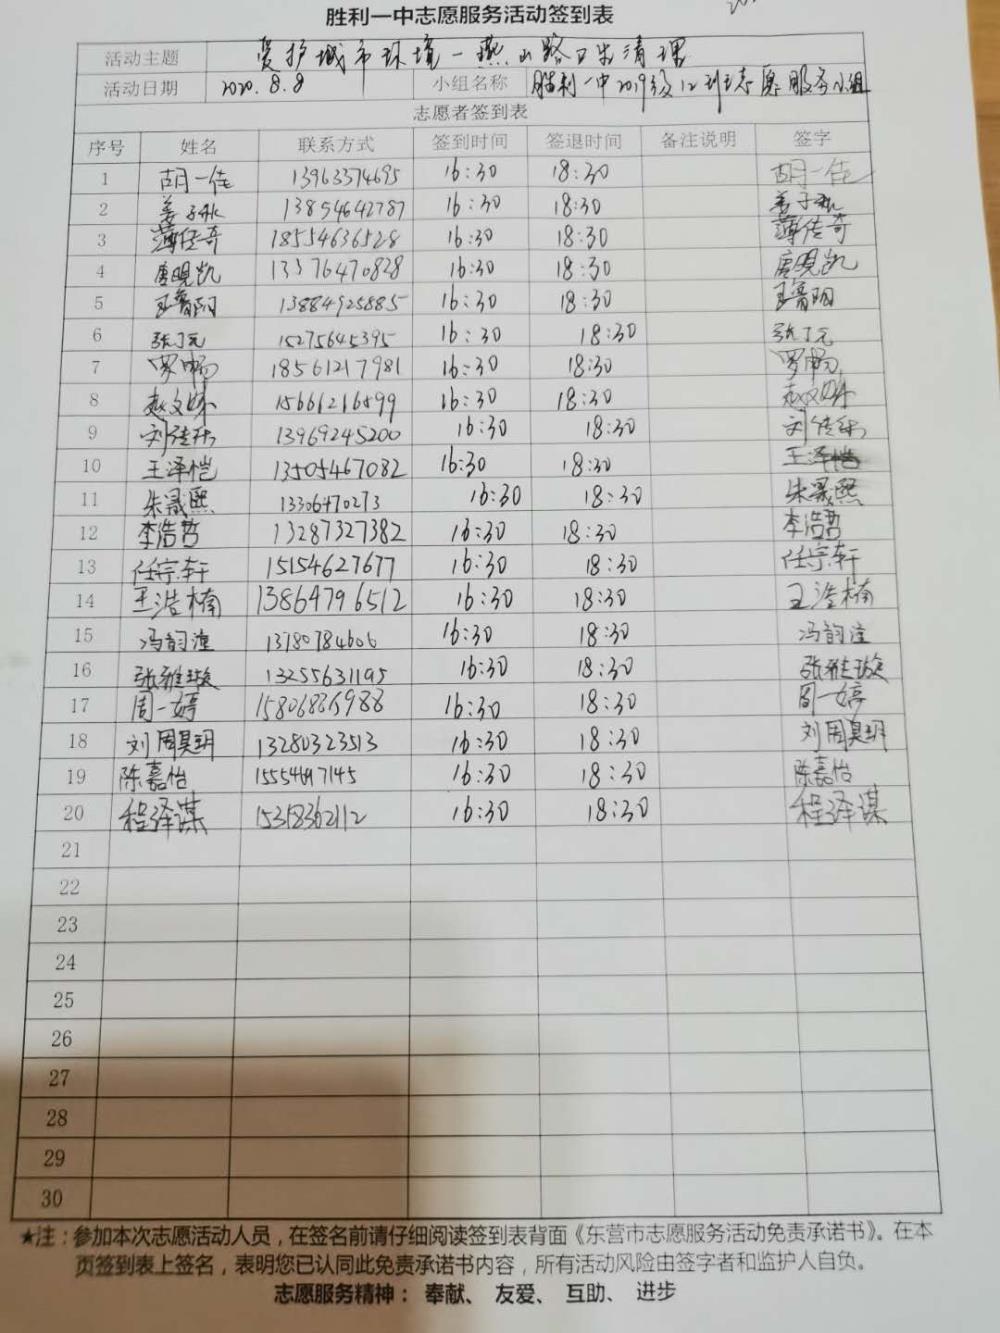 胜利一中志愿服务活动签到表
活动主题 爱护城市环境-燕山路卫生清理
活动日期 2020.8.8 小组名称 胜利一中2019级12班志愿服务小组
志愿者签到表
序号 姓名 联系方式 签到时间 签退时间 备注说明 签字
1 胡一佳 13963374695 16:30 18:30 胡一佳
2 姜子 13854642787 16:30 18:30 姜子
3 薄传奇 18554636528 16:30 18:30 薄传奇
4 唐晛凯 13376470828 16:30 18:30 唐晛凯
5 王鲁阳 13884925885 16:30 18:30 王鲁阳
6 张了元 15275645395 16:30 18:30 张了元
7 罗畅 18561217981 16:30 18:30 罗畅
8 赵文姝 15661216599 16:30 18:30 赵文姝
9 刘 13969245200 16:30 18:30 刘
10 王泽恺 13505467082 16:30 18:30 王泽恺
11 朱晟熙 13306470273 16:30 18:30 朱晟熙
12 李浩哲 13287327382 16:30 18:30 李浩哲
13 任宗轩 15154627677 16:30 18:30 任宗轩
14 王浩楠 13864796512 16:30 18:30 王浩楠
15 冯韵潼 13780784606 16:30 18:30 冯韵潼
16 张雅璇 13255631195 16:30 18:30 张雅璇
17 周一婷 16:30 18:30 周一婷
18 刘周昊玥 13280323513 16:30 18:30 刘周昊玥
19 陈嘉怡 16:30 18:30 陈嘉怡
20 程泽谋 15318362112 16:30 18:30 程泽谋
21
22
23
24
25
26
27
28
29
30
★注：参加本次志愿活动人员，在签名前请仔细阅读签到表背面《东营市志愿服务活动免责承诺书》。在本
页签到表上签名，表明您已认同此免责承诺书内容，所有活动风险由签字者和监护人自负。
志愿服务精神： 奉献、 友爱、 互助、 进步